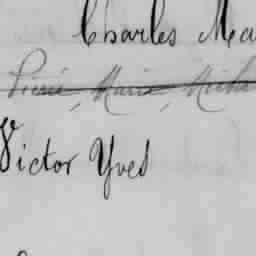 Charles Ma
Pierre, Marie, Micha
Victor Yves